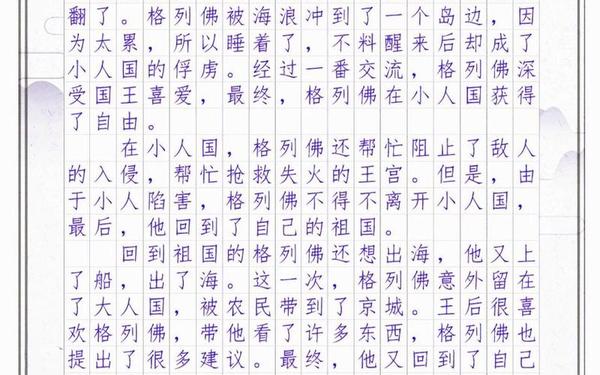 翻了。格列佛被海浪冲到了一个岛边，因
为太累，所以睡着了，不料醒来后却成了
小人国的俘虏。经过一番交流，格列佛深
受国王喜爱，最终，格列佛在小人国获得
了自由。
在小人国，格列佛还帮忙阻止了敌人
的入侵，帮忙抢救失火的王宫。但是，由
于小人陷害，格列佛不得不离开小人国，
最后，他回到了自己的祖国。
回到祖国的格列佛还想出海，他又上
了船，出了海。这一次，格列佛意外留在
了大人国，被农民带到了京城。王后很喜
欢格列佛，带他看了许多东西，格列佛也
提出了很多建议。最终，他又回到了自己